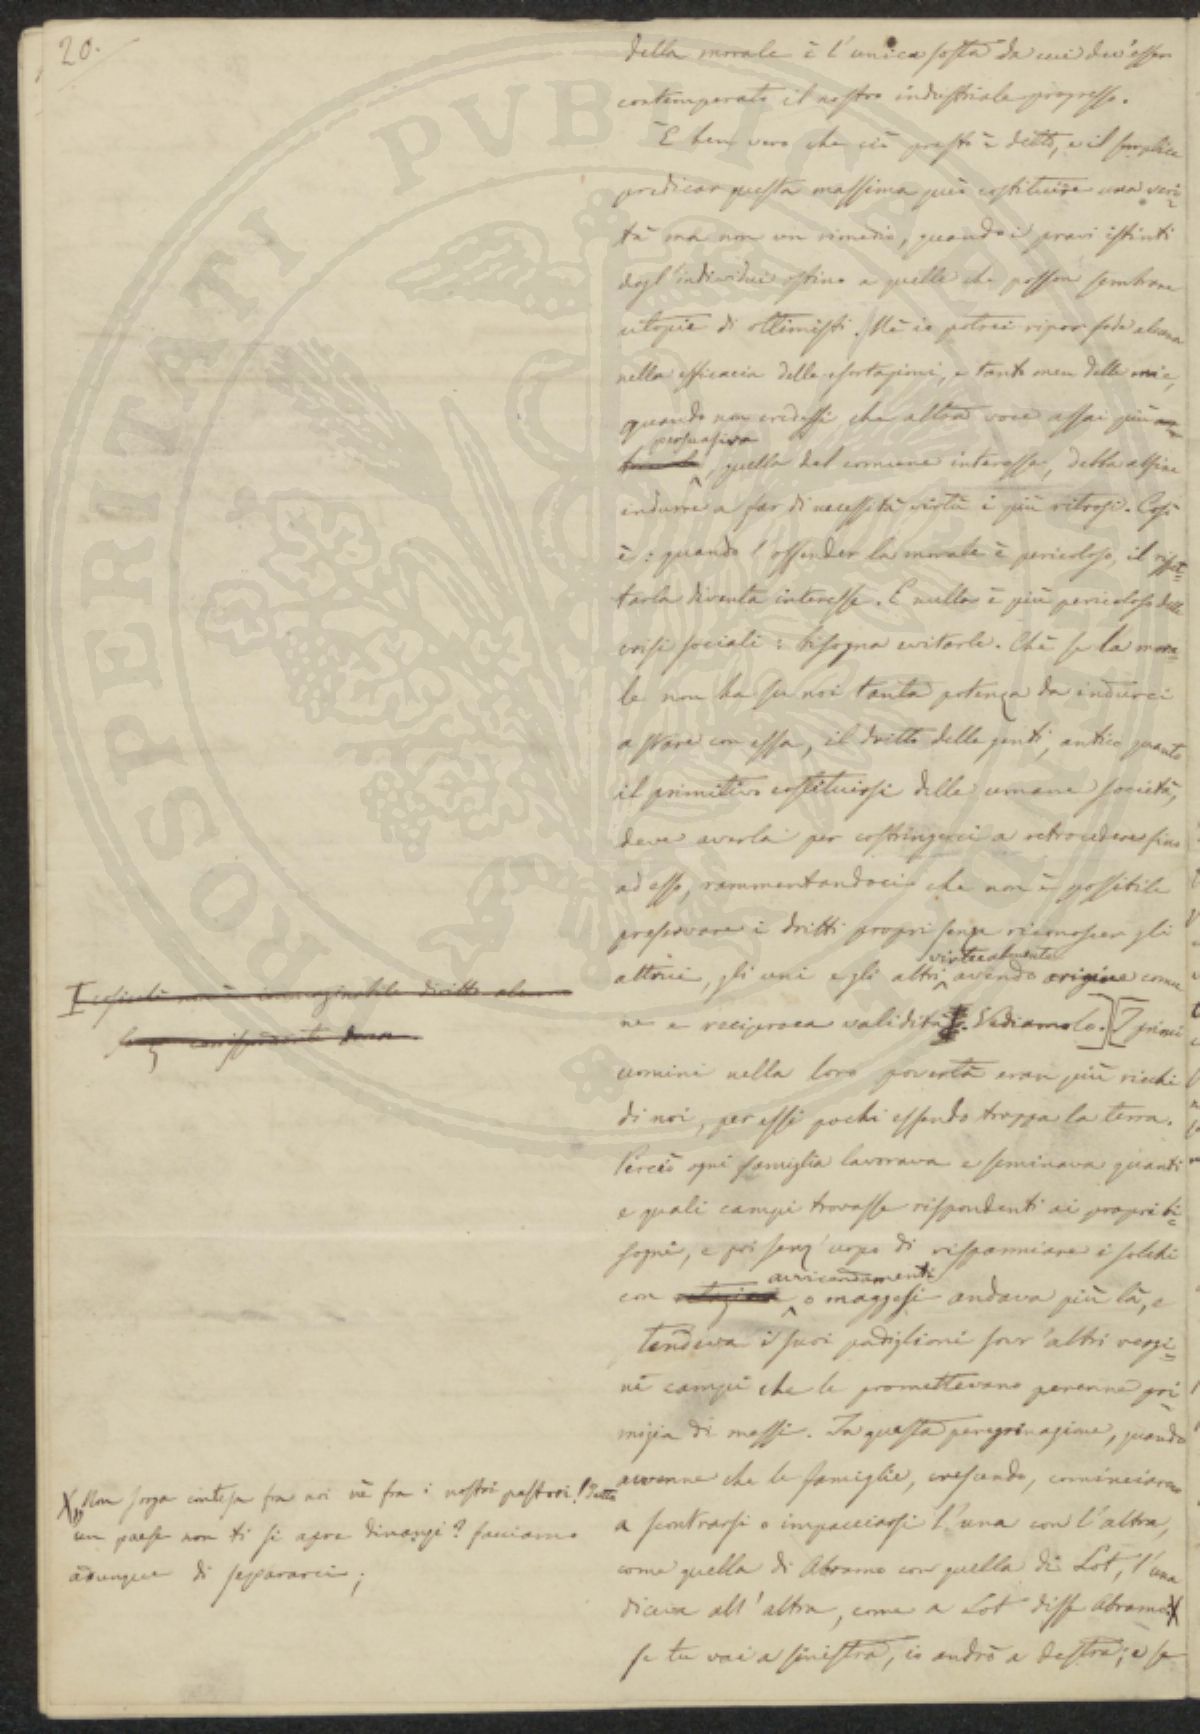 20.
della morale è l'unica sosta da cui dev'esser
contemperato il nostro industriale progresso.
È ben vero che ciò presto è detto, e il semplice
predicar questa massima può costituire una veri-
tà ma non un rimedio, quando i pravi istinti
degl'individui ostino a quelle che posson sembrare
utopie di ottimisti. Nè io potrei ripor fede alcuna
nella efficacia delle esortazioni, e tanto men delle mie,
quando non credessi che altra voce assai più
persuasiva
, quella del comune interesse, debba alfine
indurre a far di necessità virtù i più ritrosi. Così
è: quando l'offender la morale è pericoloso, il rispet-
tarla diventa interesse. E nulla è più pericoloso delle
crisi sociali: bisogna evitarle. Chè se la mora-
le non ha su noi tanta potenza da indurci
a stare con essa, il dritto delle genti, antico quanto
il primitivo costituirsi delle umane società,
deve averla per costringerci a retrocedere sino
ad esso, rammentandoci che non è possibile
preservare i dritti propri senza riconoscer gli
virtualmente
altrui, gli uni e gli altri avendo origine comu
ne e reciproca validità. Vediamolo.] [I primi
uomini nella loro povertà eran più ricchi
di noi, per essi pochi essendo troppa la terra.
Perciò ogni famiglia lavorava e seminava quanti
e quali campi trovasse rispondenti ai propri bi-
sogni, e poi senz'uopo di risparmiare i solchi
avvicendamenti
con rotazioni o maggesi andava più là, e
tendeva i suoi padiglioni sovr'altri vergi-
ni campi che le promettevano perenne pri-
mizia di messi. In questa peregrinazione, quando
avvenne che le famiglie, crescendo, cominciarono
a scontrarsi o impacciarsi l'una con l'altra,
come quella di Abramo con quella di Lot, l'una
diceva all'altra, come a Lot disse Abramo: X
se tu vai a sinistra, io andrò a destra; e se
[cosicchè non è immaginabile diritto alcuno
senza corrispondente dovere
X „Non sorga contesa fra noi nè fra i nostri pastori! Tutto
un paese non ti si apre dinanzi? facciamo
adunque di separarci;